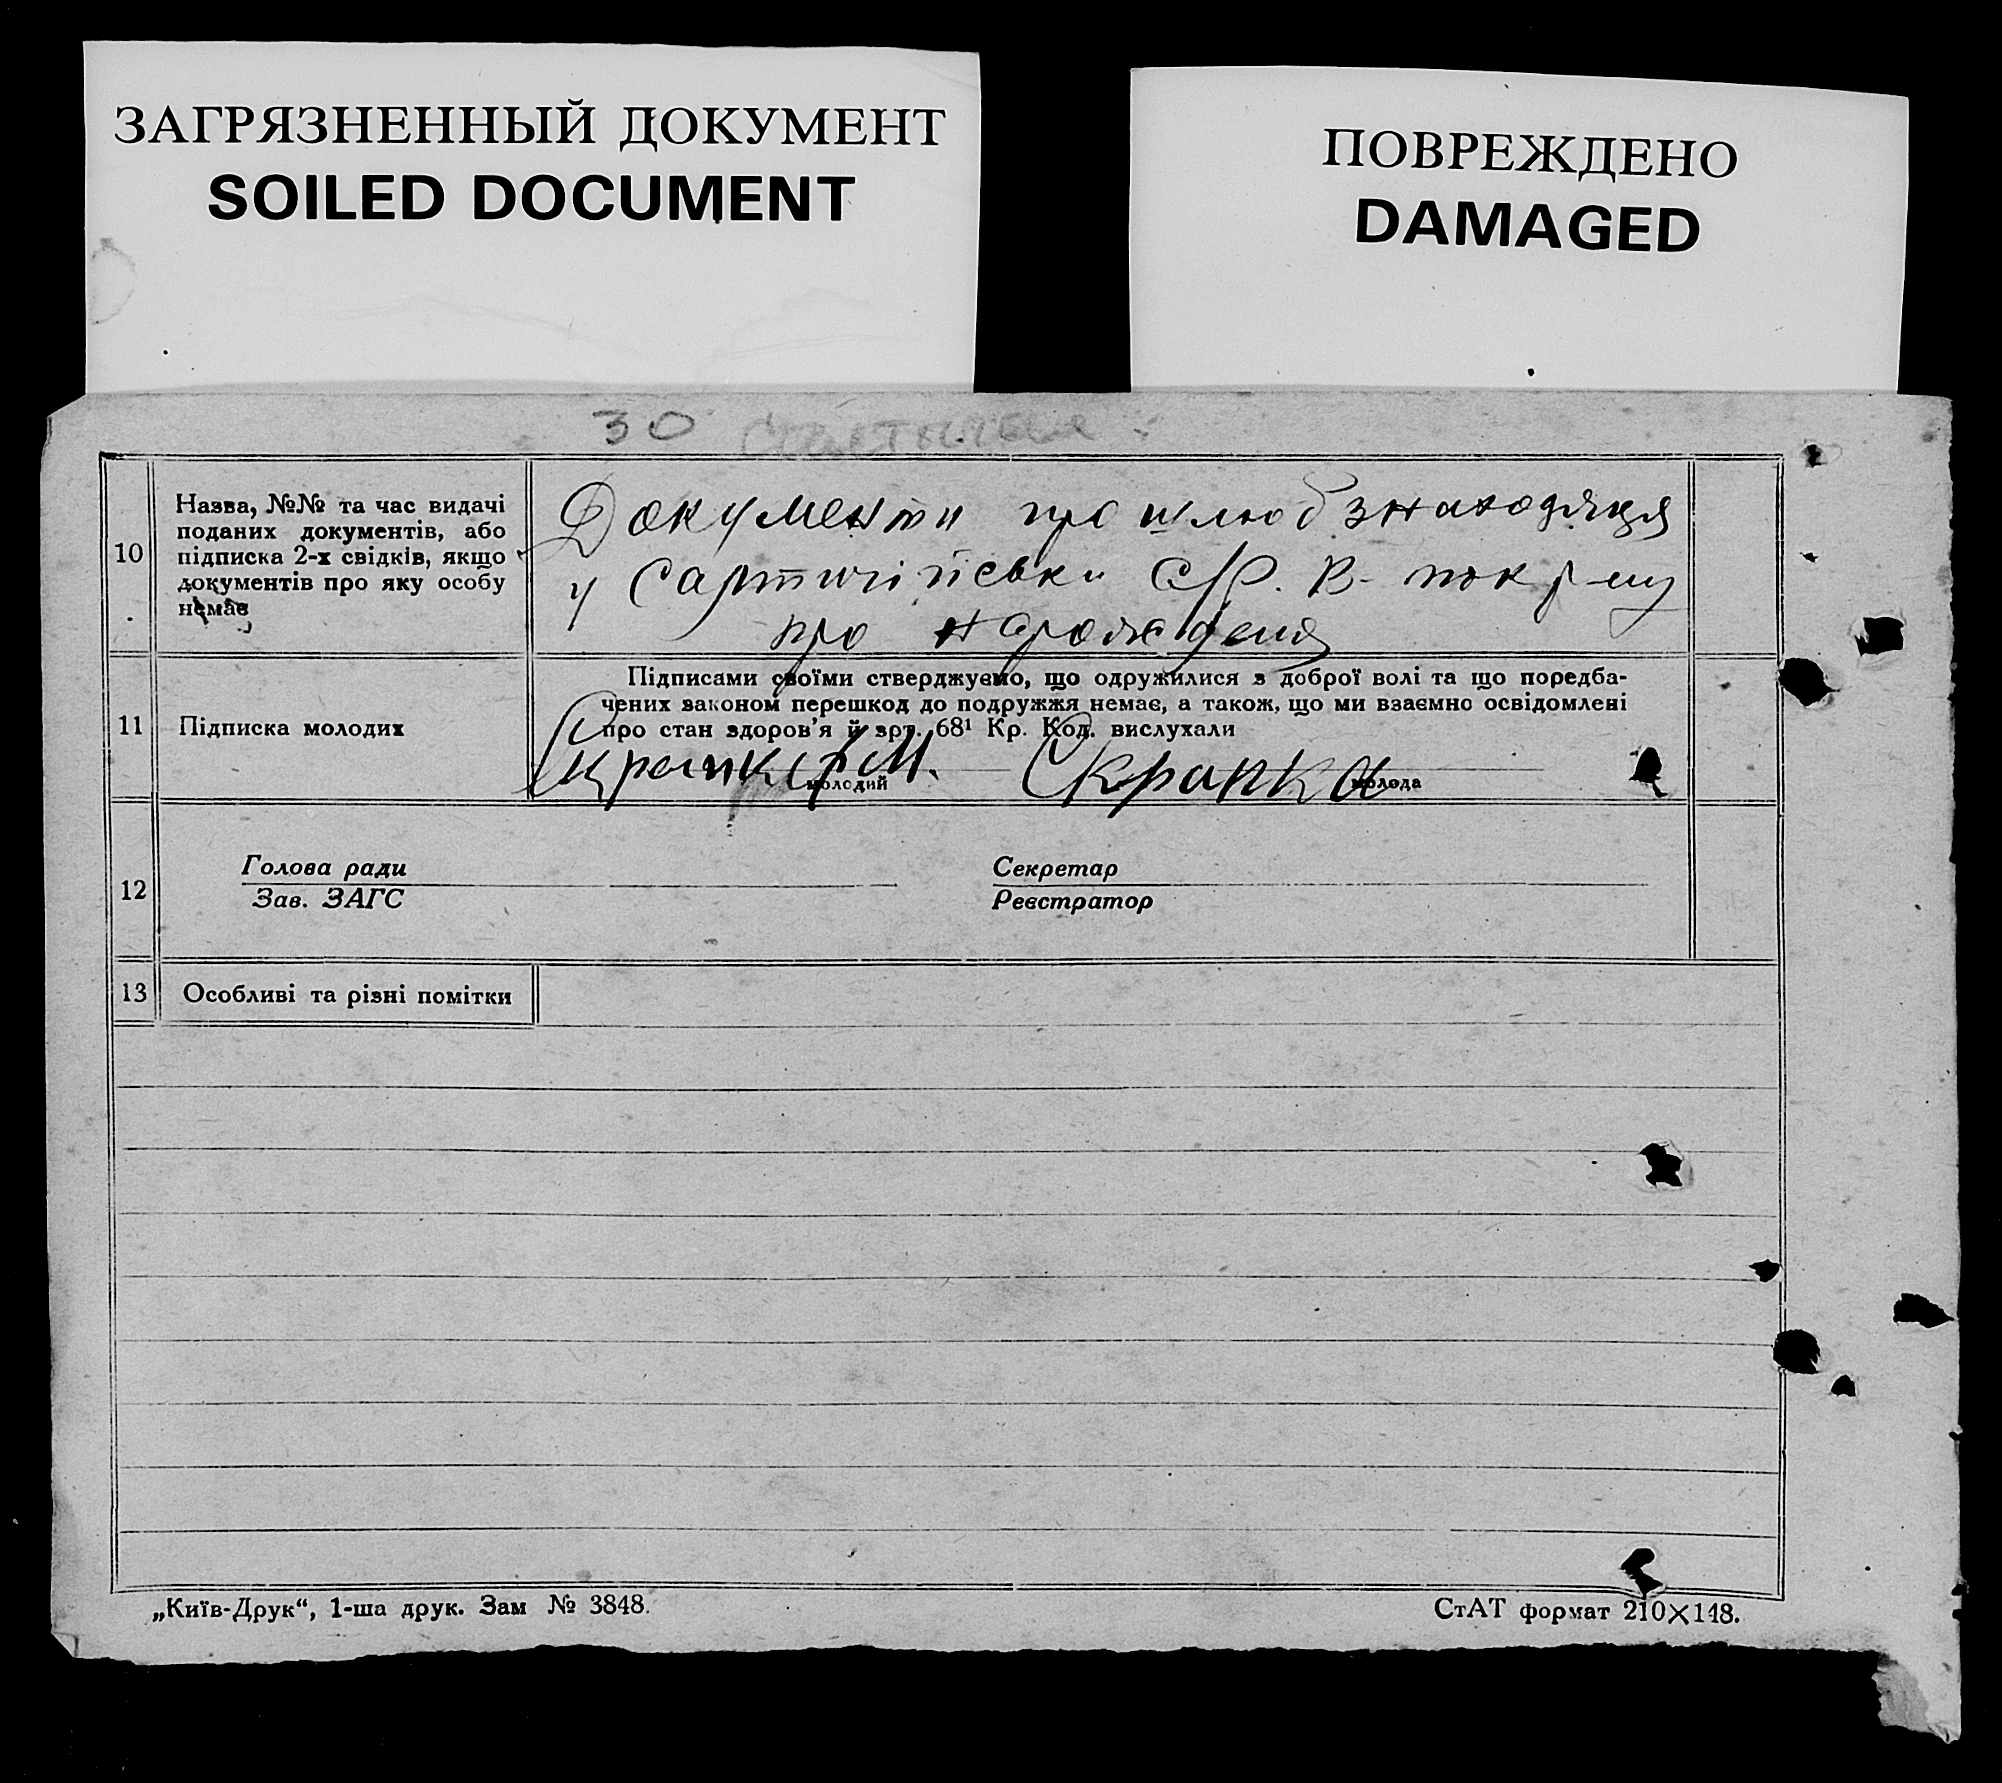 ЗАГРЯЗНЕННЫЙ ДОКУМЕНТ
SOILED DOCUMENT
ПОВРЕЖДЕНО
DAMAGED
30
10
Назва, №№ та час видачі
поданих документів, або
підписка 2-х свідків, якщо
документів про яку особу
немає
Документи про шлюб знаходяця
у С/Р. В-
про
11
Підписка молодих
Підписами своїми стверджуємо, що одружилися з доброї волі та що поредба-
чених законом перешкод до подружжя немає, а також, що ми взаємно освідомлені
про стан здоров'я й арт. 68¹ Кр. Код. вислухали
М. Скрипка
молодий молода
12
Голова ради
Зав. ЗАГС
Секретар
Реєстратор
13
Особливі та різні помітки
„Київ-Друк“, 1-ша друк. Зам № 3848.
СтАТ формат 210×148.